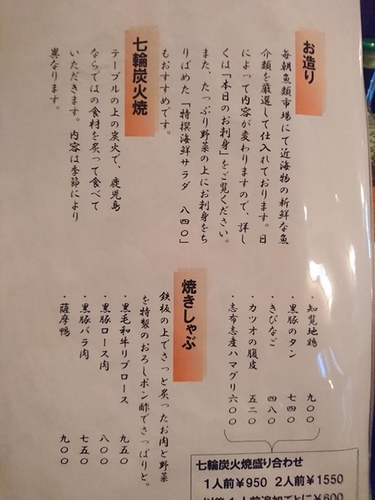 お造り
毎朝魚類市場にて近海物の新鮮な魚
介類を厳選して仕入れております。日
によって内容が変わりますので、詳し
くは「本日のお刺身」をご覧ください。
また、たっぷり野菜の上にお刺身をち
りばめた「特撰海鮮サラダ 八四〇」
もおすすめです。
七輪炭火焼
テーブルの上の炭火で、鹿児島
ならではの食材を炙って食べて
いただきます。内容は季節により
異なります。
・知覧地鶏 九〇〇
・黒豚のタン 七四〇
・きびなご 四八〇
・カツオの腹皮 五二〇
・志布志産ハマグリ 六〇〇
七輪炭火焼盛り合わせ
1人前¥950 2人前¥1550
以降1人前追加ごとに¥600
焼きしゃぶ
鉄板の上でさっと炙ったお肉と野菜
を特製のおろしポン酢でさっぱりと。
・黒毛和牛リブロース 九五〇
・黒豚ロース肉 八〇〇
・黒豚バラ肉 七五〇
・薩摩鴨 九〇〇